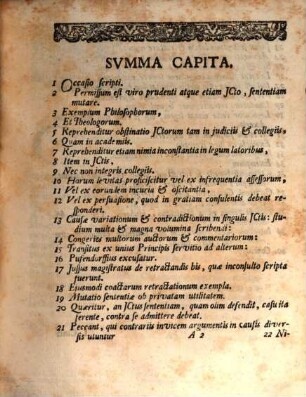 SVMMA CAPITA.
1 Occasio scripti.
2 Permissum est viro prudenti atque etiam JCto, sententiam
mutare.
3 Exemplum Philosophorum,
4 Et Theologorum.
5 Reprehenditur obstinatio JCtorum tam in judiciis & collegiis,
6 Quam in academiis.
7 Reprehenditur etiam nimia inconstantia in legum latoribus,
8 Item in JCtis,
9 Nec non integris collegiis.
10 Horum levitas proficiscitur vel ex infrequentia assessorum,
11 Vel ex eorundem incuria & oscitantia,
12 Vel ex persuasione, quod in gratiam consulentis debeat re-
sponderi.
13 Causæ variationum & contradictionum in singulis JCtis: stu-
dium multa & magna volumina scribendi:
14 Congeries multorum auctorum & commentariorum:
15 Transitus ex unius Principis servitio ad alterum:
16 Pufendorffius excusatur.
17 Jussus magistratus de retractandis his, quæ inconsulto scripta
fuerunt.
18 Ejusmodi coactarum retractationum exempla.
19 Mutatio sententiæ ob privatam utilitatem.
20 Quæritur, an JCtus sententiam, quam olim defendit, casu ita
ferente, contra se admittere debeat.
21 Peccant, qui contrariis invicem argumentis in causis diver-
sis utuntur
A 2
22 Ni-